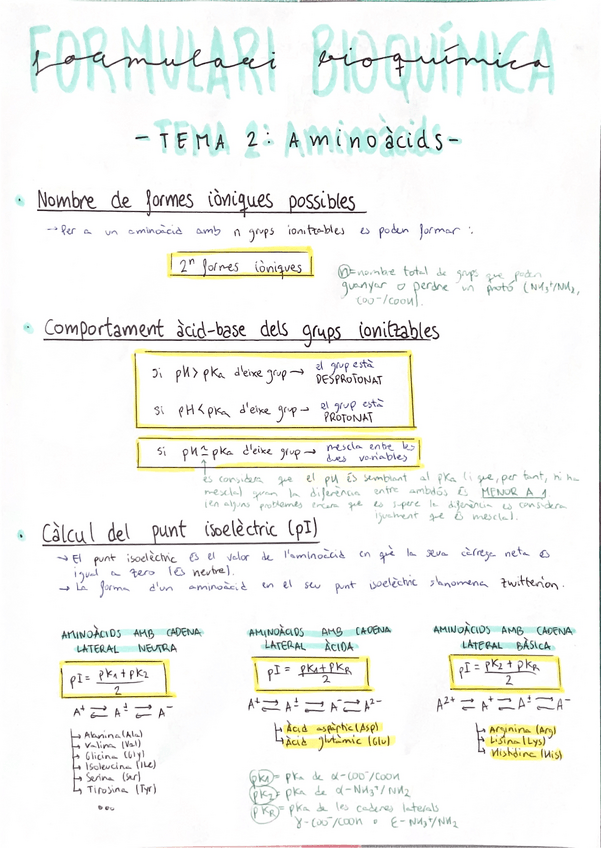 FORMULARI BIOQUÍMICA
formulari bioquímica
- TEMA 2: Aminoàcids -
• Nombre de formes iòniques possibles
→ Per a un aminoàcid amb n grups ionitzables es poden formar:
2ⁿ formes iòniques
n = nombre total de grups que poden
guanyar o perdre un protó (NH₃⁺/NH₂,
COO⁻/COOH).
• Comportament àcid-base dels grups ionitzables
Si pH > pKa d'eixe grup → el grup està
DESPROTONAT
Si pH < pKa d'eixe grup → el grup està
PROTONAT
Si pH ≃ pKa d'eixe grup → mescla entre les
dues variables
es considera que el pH és semblant al pKa (i que, per tant, hi ha
mescla) quan la diferència entre ambdós és MENOR A 1
(en alguns problemes encara que es supere la diferència es considera
igualment que és mescla).
• Càlcul del punt isoelèctric (pI)
→ El punt isoelèctric és el valor de l'aminoàcid en què la seva càrrega neta és
igual a zero (és neutre).
→ La forma d'un aminoàcid en el seu punt isoelèctric s'anomena zwitterion.
AMINOÀCIDS AMB CADENA
LATERAL NEUTRA
pI = pK₁ + pK₂ / 2
A⁺ ⇄ A± ⇄ A⁻
↳ Alanina (Ala)
↳ Valina (Val)
↳ Glicina (Gly)
↳ Isoleucina (Ile)
↳ Serina (Ser)
↳ Tirosina (Tyr)
...
AMINOÀCIDS AMB CADENA
LATERAL ÀCIDA
pI = pK₁ + pK_R / 2
A⁺ ⇄ A± ⇄ A⁻ ⇄ A²⁻
↳ Àcid aspàrtic (Asp)
↳ Àcid glutàmic (Glu)
AMINOÀCIDS AMB CADENA
LATERAL BÀSICA
pI = pK₂ + pK_R / 2
A²⁺ ⇄ A⁺ ⇄ A± ⇄ A⁻
↳ Arginina (Arg)
↳ Lisina (Lys)
↳ Histidina (His)
pK₁ = pKa de α-COO⁻/COOH
pK₂ = pKa de α-NH₃⁺/NH₂
pK_R = pKa de les cadenes laterals
γ-COO⁻/COOH o ε-NH₃⁺/NH₂